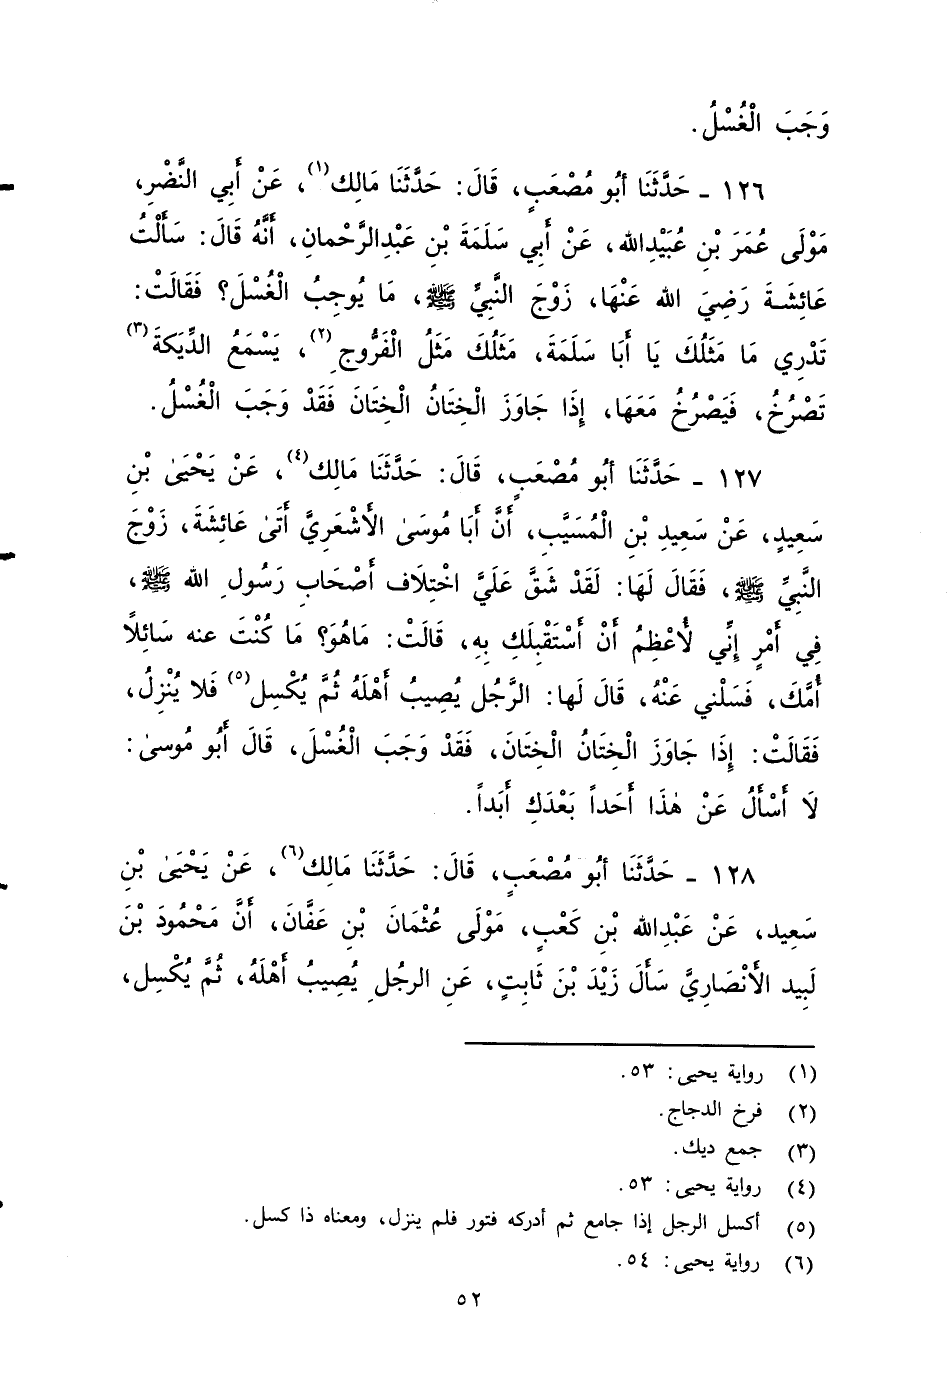 وَجَبَ الْغُسْلُ.
١٢٦ ـ حَدَّثَنَا أَبُو مُصْعَبٍ، قَالَ: حَدَّثَنَا مَالِك(١)، عَنْ أَبِي النَّضْرِ،
مَوْلَى عُمَرَ بْنِ عُبَيْدِالله، عَنْ أَبِي سَلَمَةَ بْنِ عَبْدِالرَّحْمانِ، أَنَّهُ قَالَ: سَأَلْتُ
عَائِشَةَ رَضِيَ الله عَنْهَا، زَوْجَ النَّبِيِّ ﷺ، مَا يُوجِبُ الْغُسْلَ؟ فَقَالَتْ:
تَدْرِي مَا مَثَلُكَ يَا أَبَا سَلَمَةَ، مَثَلُكَ مَثَلُ الْفَرُّوجِ(٢)، يَسْمَعُ الدِّيَكَةَ(٣)
تَصْرُخُ، فَيَصْرُخُ مَعَهَا، إِذَا جَاوَزَ الْخِتَانُ الْخِتَانَ فَقَدْ وَجَبَ الْغُسْلُ.
١٢٧ ـ حَدَّثَنَا أَبُو مُصْعَبٍ، قَالَ: حَدَّثَنَا مَالِك(٤)، عَنْ يَحْيَىٰ بْنِ
سَعِيدٍ، عَنْ سَعِيدِ بْنِ الْمُسَيَّبِ، أَنَّ أَبَا مُوسَىٰ الأَشْعَرِيَّ أَتَىٰ عَائِشَةَ، زَوْجَ
النَّبِيِّ ﷺ، فَقَالَ لَهَا: لَقَدْ شَقَّ عَلَيَّ اخْتِلَاف أَصْحَابِ رَسُولِ الله ﷺ،
فِي أَمْرٍ إِنِّي لُأعْظِمُ أَنْ أَسْتَقْبِلَكِ بِهِ، قَالَتْ: مَاهُوَ؟ مَا كُنْتَ عنه سَائِلًا
أُمَّكَ، فَسَلْني عَنْهُ، قَالَ لَها: الرَّجُل يُصِيبُ أَهْلَهُ ثُمَّ يُكْسِل(٥) فَلا يُنْزِلُ،
فَقَالَتْ: إِذَا جَاوَزَ الْخِتَانُ الْخِتَانَ، فَقَدْ وَجَبَ الْغُسْلَ، قَالَ أَبُو مُوسىٰ:
لَا أَسْأَلُ عَنْ هٰذَا أَحَداً بَعْدَكِ أَبَداً.
١٢٨ ـ حَدَّثَنَا أَبُو مُصْعَبٍ، قَالَ: حَدَّثَنَا مَالِك(٦)، عَنْ يَحْيَىٰ بْنِ
سَعِيد، عَنْ عَبْدِالله بْنِ كَعْبٍ، مَوْلَى عُثْمَانَ بْنِ عَفَّانَ، أَنَّ مَحْمُودَ بْنَ
لَبِيد الأَنْصَارِيَّ سَأَلَ زَيْدَ بْنَ ثَابِتٍ، عَنِ الرجُلِ يُصِيبُ أَهْلَهُ، ثُمَّ يُكْسِل،
(١) رواية يحيى: ٥٣.
(٢) فرخ الدجاج.
(٣) جمع ديك.
(٤) رواية يحيى: ٥٣.
(٥) أكسل الرجل إذا جامع ثم أدركه فتور فلم ينزل، ومعناه ذا كسل.
(٦) رواية يحيى: ٥٤.
٥٢